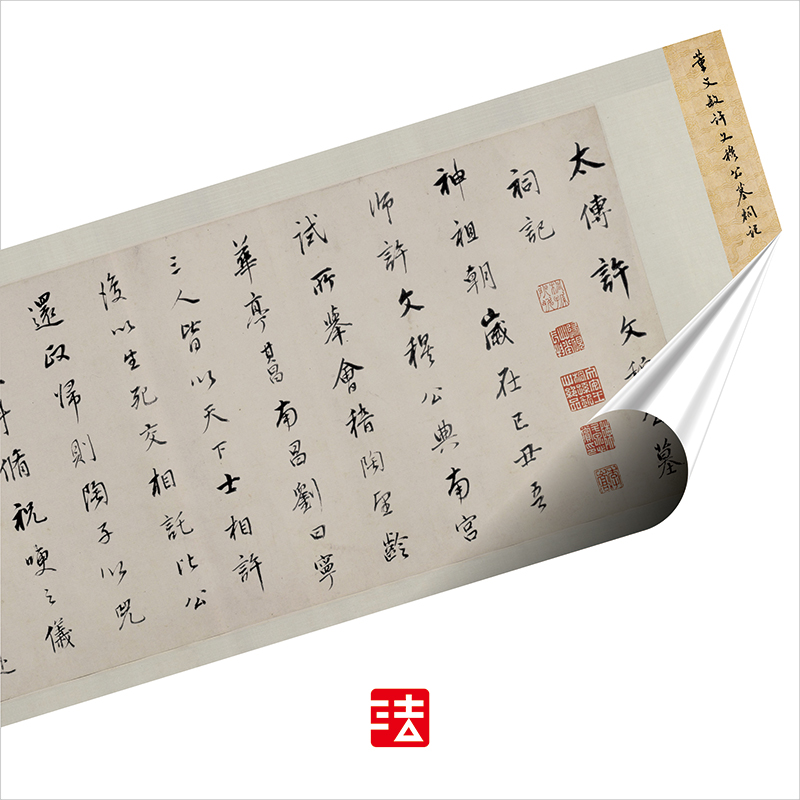 董文敏許文穆公墓祠記
太傅許文穆公墓
祠記
神祖朝歲在己丑吾
師許文穆公典南宮
試所舉會稽陶望齡
華亭其昌南昌劉曰寧
三人皆以天下士相許
後以生死交相託比公
還政歸則陶子以兕
脩祝哽之儀
法